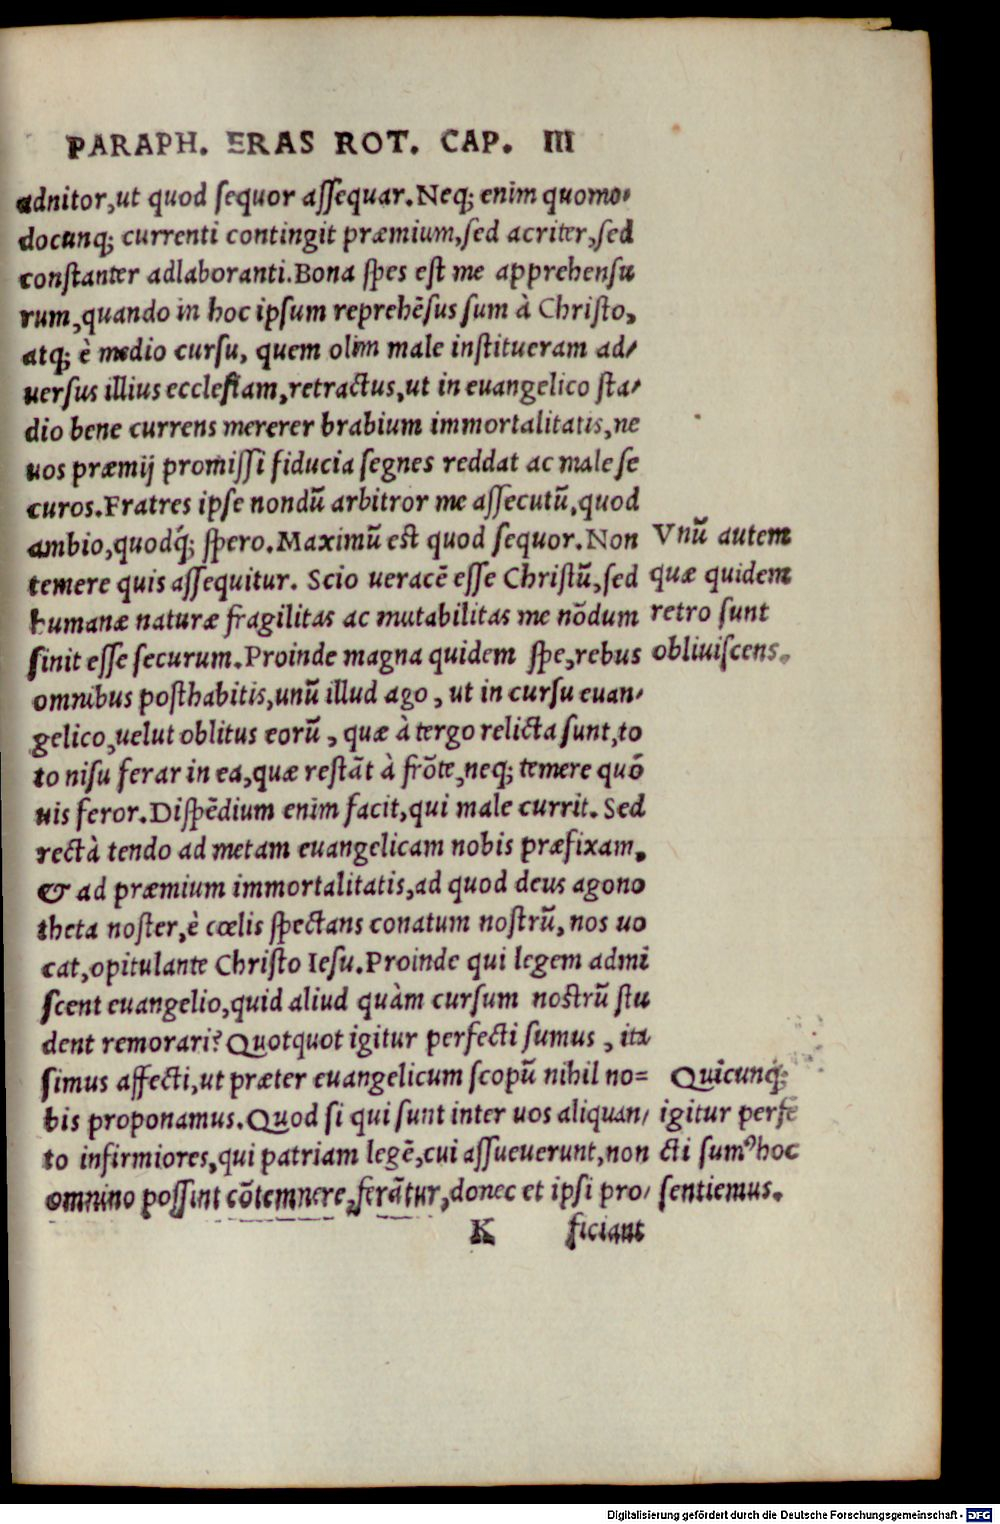 PARAPH. ERAS ROT. CAP. III
adnitor,ut quod ſequor aſſequar.Neq; enim quomo-
docunq; currenti contingit præmium,ſed acriter,ſed
conſtanter adlaboranti.Bona ſpes eſt me apprehenſu
rum,quando in hoc ipſum reprehẽſus ſum à Chriſto,
atq; è medio curſu, quem olim male inſtitueram ad-
uerſus illius eccleſiam,retractus,ut in euangelico ſta-
dio bene currens mererer brabium immortalitatis,ne
uos præmij promiſſi fiducia ſegnes reddat ac male ſe
curos.Fratres ipſe nondũ arbitror me aſſecutũ,quod
ambio,quodq́; ſpero.Maximũ eſt quod ſequor.Non
temere quis aſſequitur. Scio ueracẽ eſſe Chriſtũ,ſed
humanæ naturæ fragilitas ac mutabilitas me nõdum
ſinit eſſe ſecurum.Proinde magna quidem ſpe,rebus
omnibus poſthabitis,unũ illud ago, ut in curſu euan-
gelico,uelut oblitus eorũ, quæ à tergo relicta ſunt,to
to niſu ferar in ea,quæ reſtãt à frõte,neq; temere quõ
uis feror.Diſpẽdium enim facit,qui male currit. Sed
rectà tendo ad metam euangelicam nobis præfixam,
& ad præmium immortalitatis,ad quod deus agono
theta noſter,è cœlis ſpectans conatum noſtrũ, nos uo
cat,opitulante Chriſto Ieſu.Proinde qui legem admi
ſcent euangelio,quid aliud quàm curſum noſtrũ ſtu
dent remorari? Quotquot igitur perfecti ſumus, ita
ſimus affecti,ut præter euangelicum ſcopũ nihil no=
bis proponamus.Quod ſi qui ſunt inter uos aliquan-
to infirmiores,qui patriam legẽ,cui aſſueuerunt,non
omnino poſſint cõtemnere,ferãtur,donec et ipſi pro-
K ficiant
Vnũ autem
quæ quidem
retro ſunt
obliuiſcens.
Quicunq́;
igitur perfe
cti ſumꝰ hoc
ſentiemus.
Digitalisierung gefördert durch die Deutsche Forschungsgemeinschaft - DFG